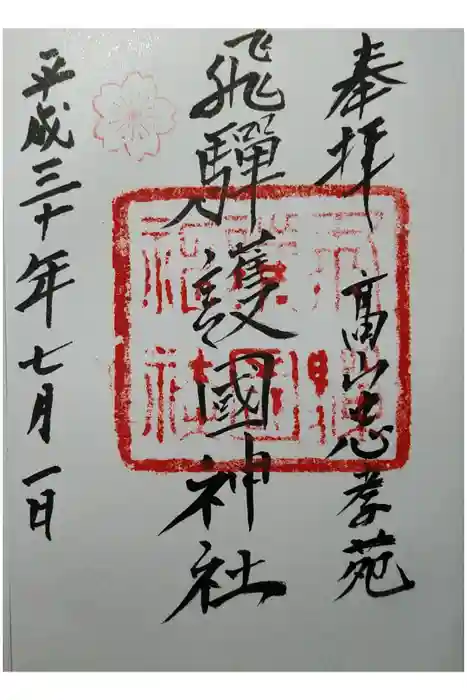 奉拝 高山忠孝苑
飛騨護國神社
平成三十年七月一日